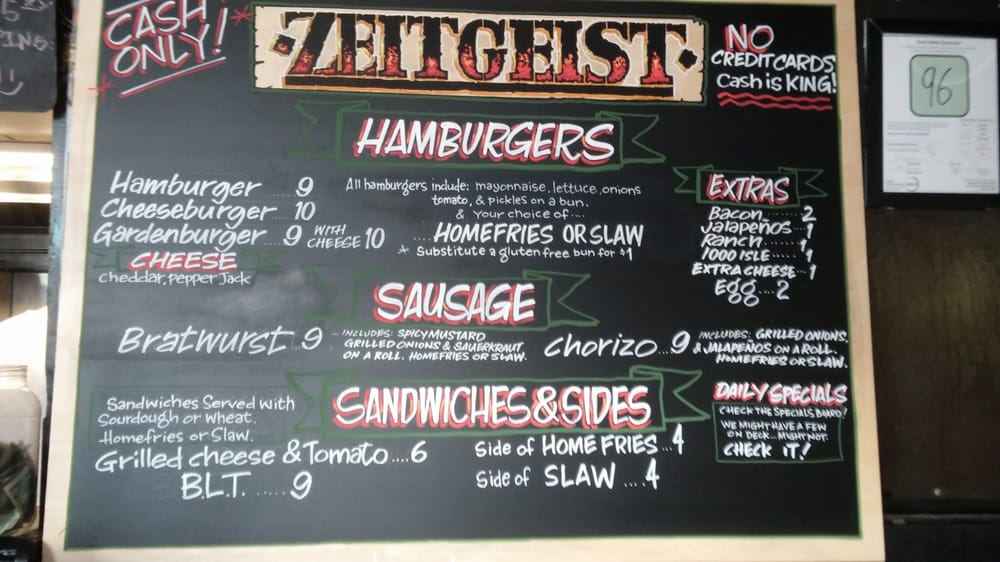 CASH
ONLY!
ZEITGEIST
NO
CREDIT CARDS
Cash is KING!
96
HAMBURGERS
Hamburger ... 9
Cheeseburger .... 10
Gardenburger ... 9 WITH CHEESE 10
CHEESE
cheddar, pepper Jack
All hamburgers include: mayonnaise, lettuce, onions
tomato, & pickles on a bun.
& your choice of....
....HOMEFRIES OR SLAW
* Substitute a gluten free bun for $1
EXTRAS
Bacon.......2
Jalapeños...1
Ranch......1
1000 ISLE.....1
EXTRA CHEESE...1
Egg....2
SAUSAGE
Bratwurst 9
...INCLUDES: SPICY MUSTARD
GRILLED ONIONS & SAUERKRAUT
ON A ROLL. HOMEFRIES OR SLAW.
chorizo...9
INCLUDES: GRILLED ONIONS,
& JALAPEÑOS ON A ROLL.
HOMEFRIES OR SLAW.
SANDWICHES & SIDES
Sandwiches Served with
Sourdough or wheat.
Homefries or Slaw.
Grilled cheese & Tomato....6
B.L.T. ......9
Side of HOME FRIES...4
Side of SLAW ....4
DAILY SPECIALS
CHECK THE SPECIALS BOARD!
WE MIGHT HAVE A FEW
ON DECK...MIGHT NOT.
CHECK IT!